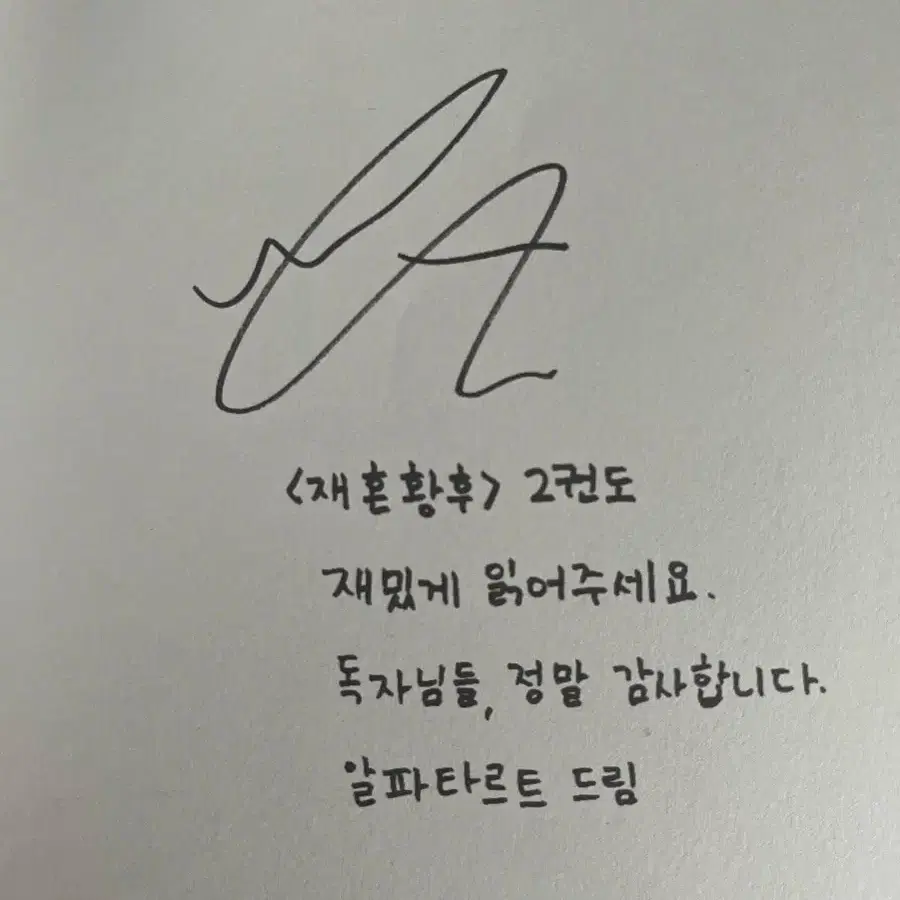 <재혼황후> 2권도
재밌게 읽어주세요.
독자님들, 정말 감사합니다.
알파타르트 드림